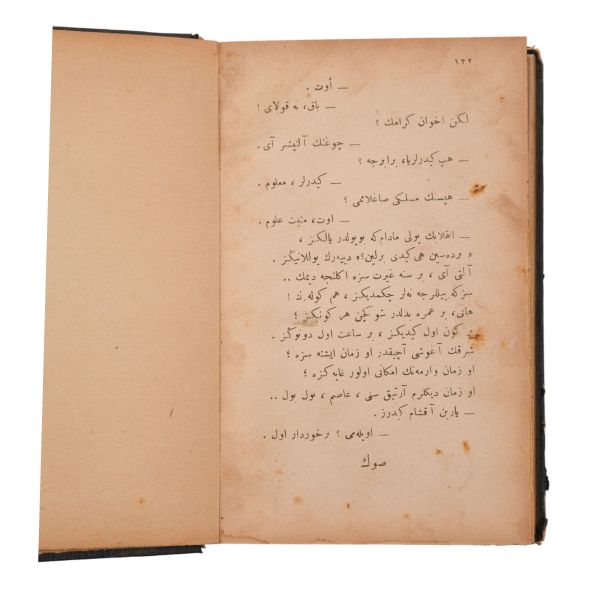 ١٣٢
— أوت .
— باق، نه قولای !
لكن اخوان كرامك ؟
— چوغنك آلتیشر آی .
— هپ كیدرلریا، برابرجه ؟
— كیدرلر ، معلوم .
— هپسنك مسلكی ساغلاممی ؟
— اوت ، مثبت علوم .
— انقلابك یولی مادام كه بویولدر یالكز ،
« برده سین هی كیدی برلین؟» دییه‌رك یوللانیكز .
آلتی آی ، بر سنه غیرت سزه اكلنجه دیمك ..
سز كه ییللرجه نه‌لر چكمدیكز ، هم كوله‌رك !
هانی، بر عمره بدلدر شو كچن هر كونكز ؛
بر كون اول كیدیكز ، بر ساعت اول دونوكز .
شرقك آغوشی آچیقدر او زمان ایشته سزه ؛
او زمان وارمه‌نك امكانی اولور غایه‌كزه ؛
او زمان دیكلرم آرتیق سی ، عاصم ، بول بول ..
— یارین آقشام كیدرز .
— اویله‌می ؟ برخوردار اول .
صوك